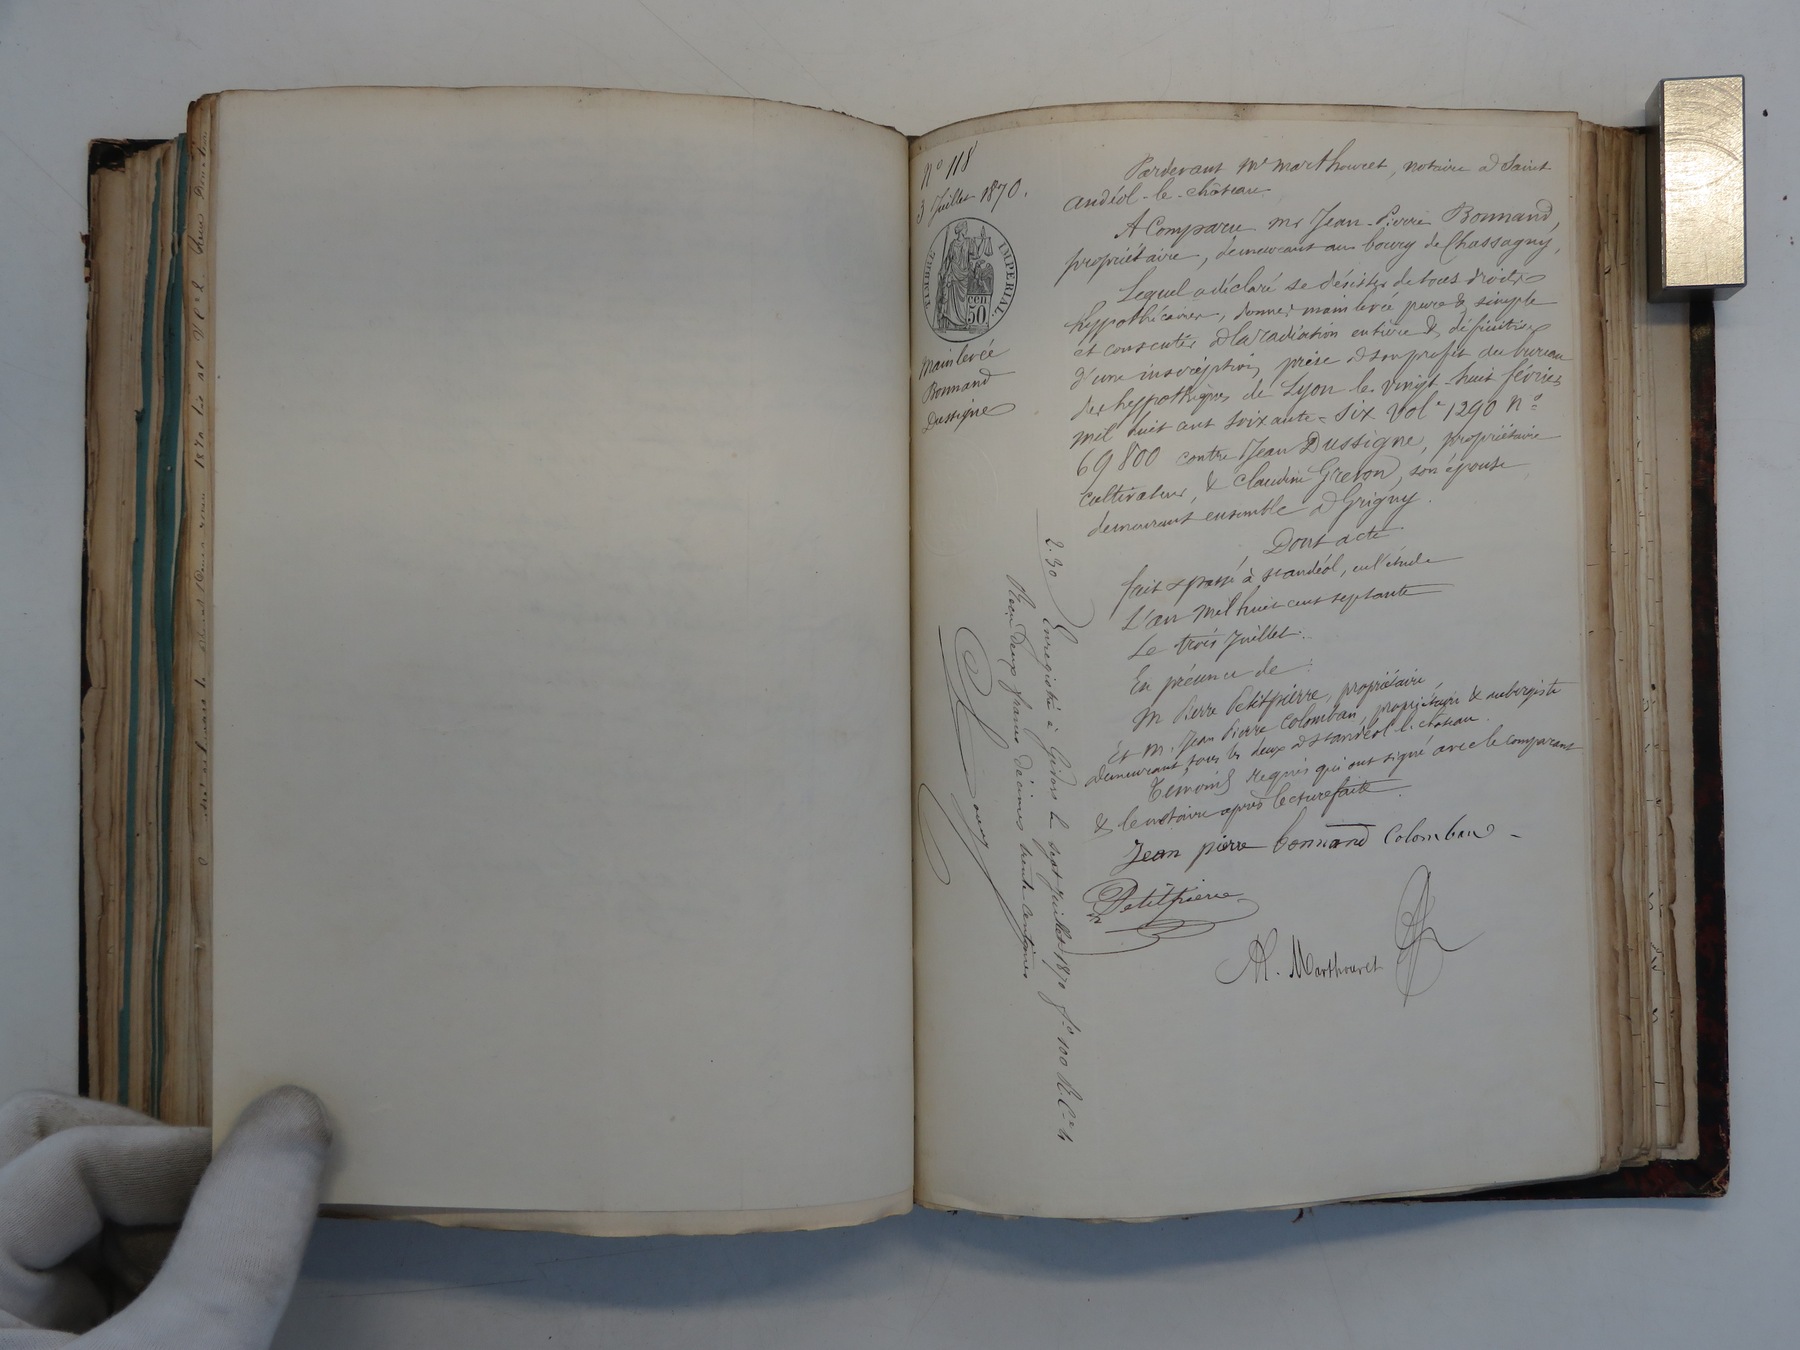 N° 118
3 Juillet 1870.
TIMBRE IMPERIAL.
CEN 50
Mainlevée
Bonnand
Dussigne
Pardevant Me Marthouret, notaire à Saint
Andéol-le-château
A Comparu Mr Jean-Pierre Bonnand,
propriétaire, demeurant au bourg de Chassagny,
Lequel a déclaré se désister de tous droits
hyppothécaires, donner main levée pure & simple
et consentir à la radiation entière & définitive
d'une inscription prise à son profit au bureau
des hyppothèques de Lyon le vingt-huit février
mil huit cent soixante-six Vol. 1290 n°
69800 contre Jean Dussigne, propriétaire
cultivateur, & Claudine Greton, son épouse
demeurant ensemble à Grigny.
Dont acte
fait & passé à St andéol, en l'étude
L'an Mil huit cent septante
Le trois Juillet.
En présence de :
M Pierre Petitpierre, propriétaire,
Et M. Jean Pierre Colomban, propriétaire & aubergiste
demeurant tous les deux à St andéol le château.
Témoins requis qui ont signé avec le comparant
& le notaire après lecture faite.
Jean pierre bonnand Colomban
Petitpierre
M. Marthouret
2.30
Enregistré à Givors le sept Juillet 1870 f° 100 R. Ce 4
Reçu deux francs décimes trente centimes